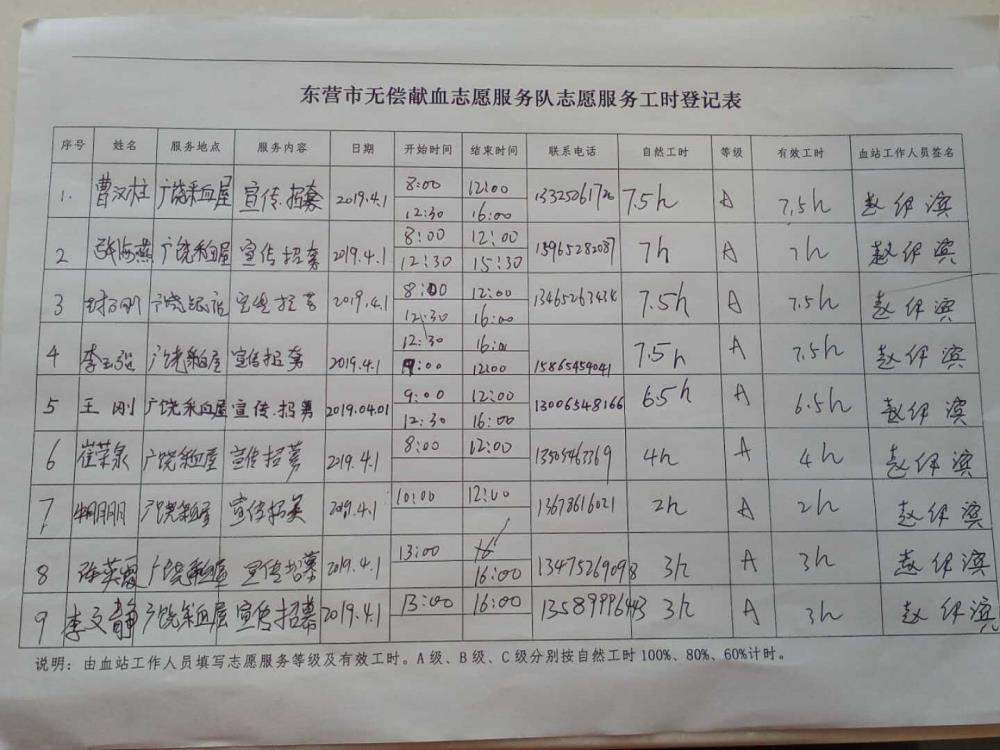 东营市无偿献血志愿服务队志愿服务工时登记表
序号 姓名 服务地点 服务内容 日期 开始时间 结束时间 联系电话 自然工时 等级 有效工时 血站工作人员签名
1. 曹汉柱 广饶采血屋 宣传.招募 2019.4.1 8:00 12:00 7.5h A 7.5h
12:30 16:00
2 张海燕 广饶采血屋 宣传招募 2019.4.1 8:00 12:00 15965282087 7h A 7h
12:30 15:30
3 2019.4.1 8:00 12:00 13465263434 7.5h A 7.5h
12:30 16:00
4 广饶采血屋 宣传招募 2019.4.1 12:30 16:00 15865459041 7.5h A 7.5h
12:00
5 王刚 广饶采血屋 宣传.招募 2019.04.01 9:00 12:00 13006548166 6.5h A 6.5h
12:30 16:00
6 崔荣泉 广饶采血屋 宣传招募 2019.4.1 8:00 12:00 13505463369 4h A 4h
7 广饶采血屋 宣传招募 2019.4.1 10:00 12:00 13678616021 2h A 2h
8 张英霞 广饶采血屋 宣传招募 2019.4.1 13:00 13475269098 3h A 3h
16:00
9 李文静 广饶采血屋 宣传招募 2019.4.1 13:00 16:00 13589996443 3h A 3h
说明：由血站工作人员填写志愿服务等级及有效工时。A级、B级、C级分别按自然工时100%、80%、60%计时。